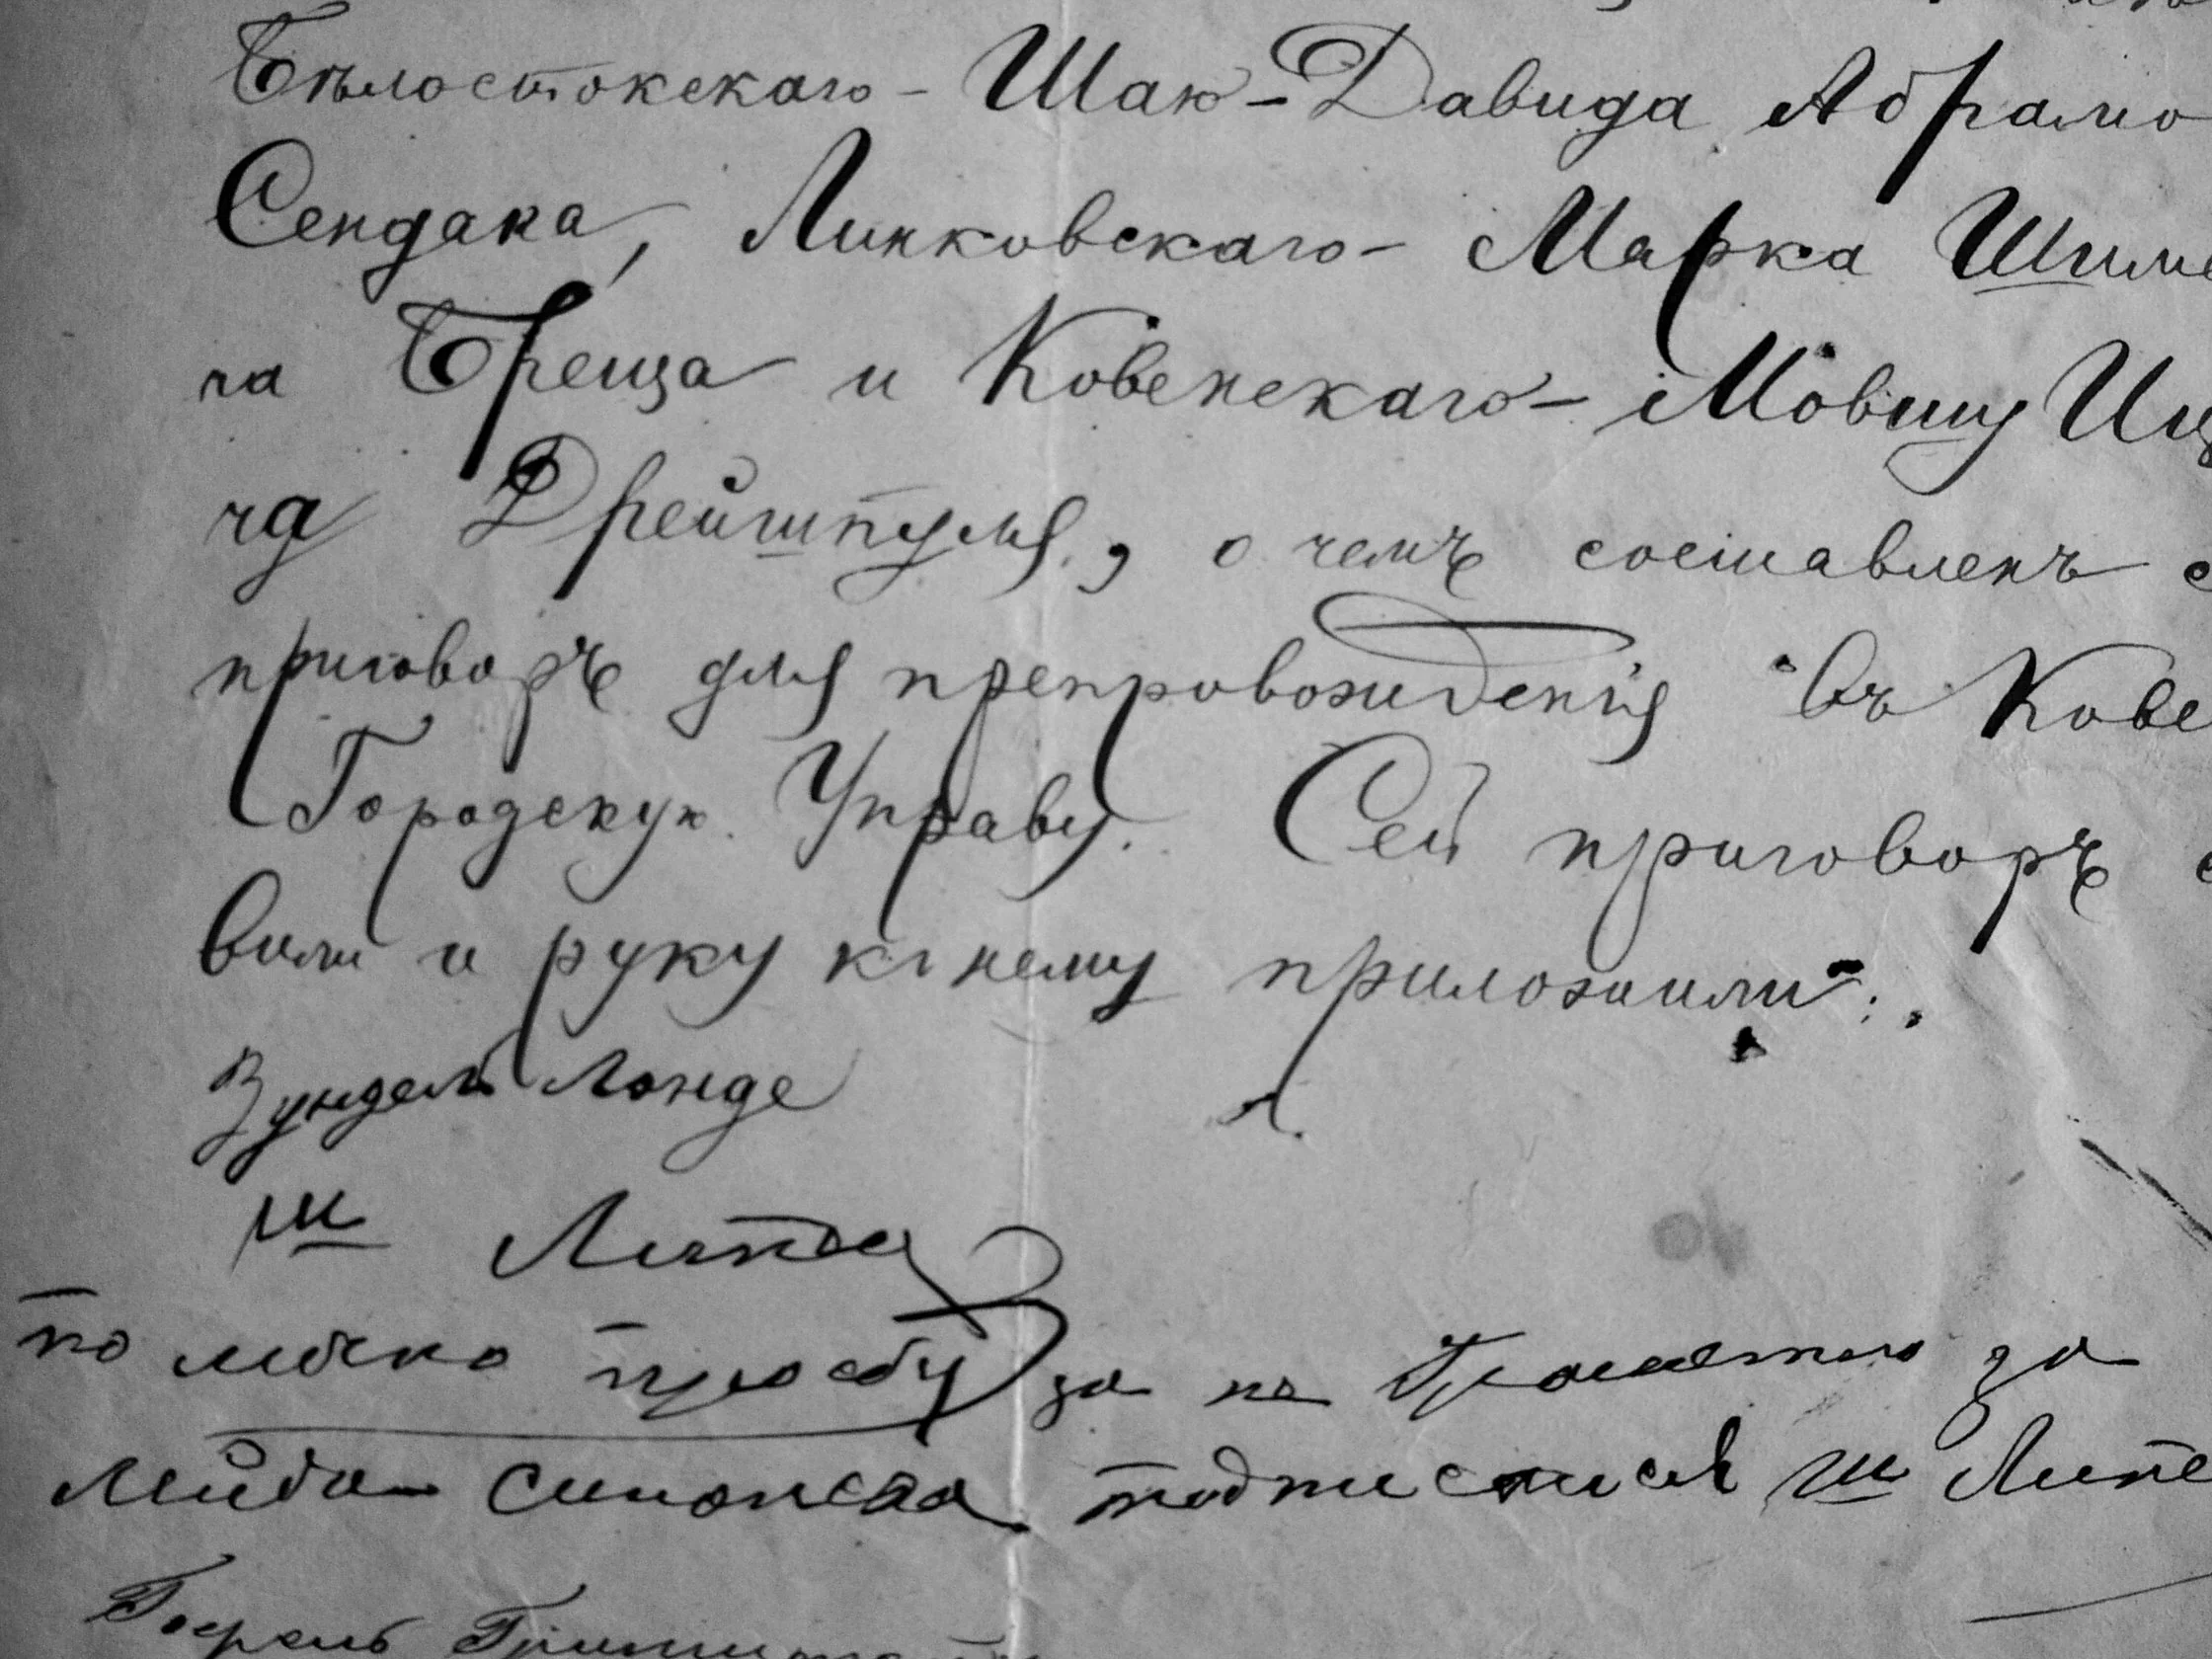 Бѣлостокскаго - Шаю - Давида Абрамо
Сендака, Линковскаго - Марка Шиме
ча Бреща и Ковенскаго - Мовшу Иц
ча Дрейшпуля, о чемъ составленъ с
приговоръ для препровожденія въ Кове
Городскую Управу. Сей приговоръ с
вили и руку къ нему приложили:
Зундель Лонде
Ш Липец
по лично просбу за не Грамотно за
Лейба Симонова подписался Ш Липе